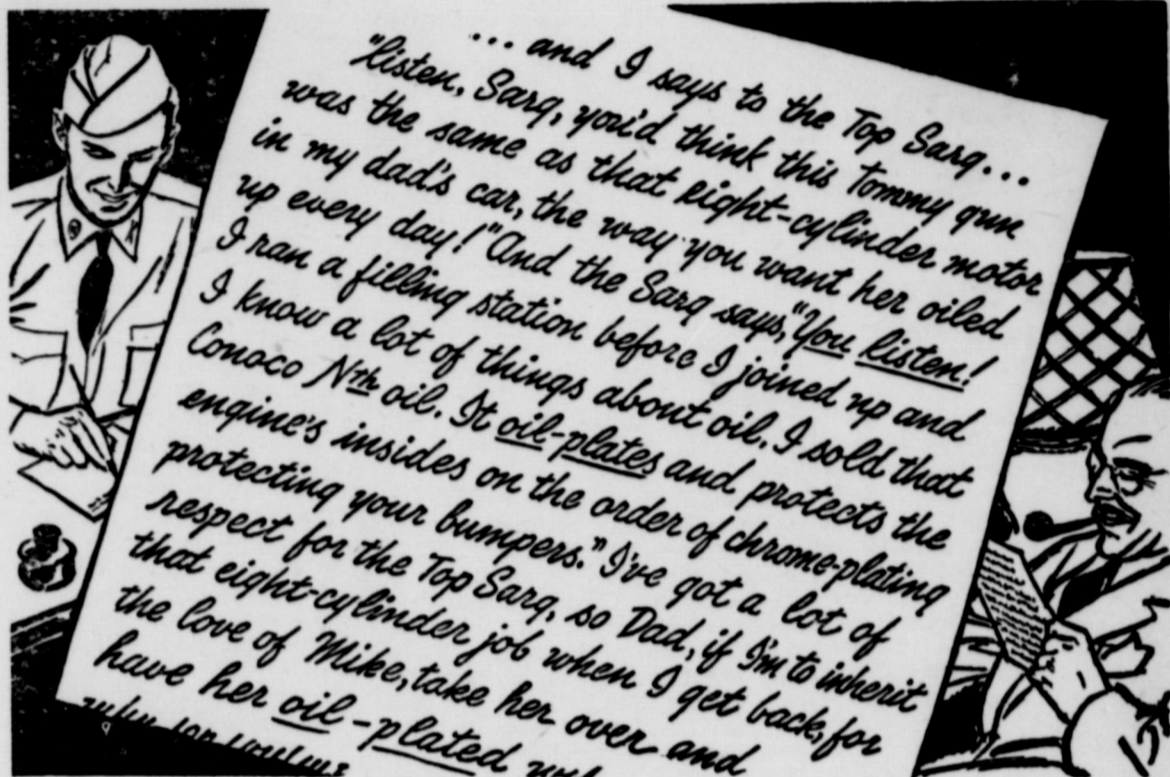 ... and I says to the Top Sarg...
"listen, Sarg, you'd think this Tommy gun
was the same as that eight-cylinder motor
in my dad's car, the way you want her oiled
up every day!" And the Sarg says, "You listen!
I ran a filling station before I joined up and
I know a lot of things about oil. I sold that
Conoco Nth oil. It oil-plates and protects the
engine's insides on the order of chrome-plating
protecting your bumpers." I've got a lot of
respect for the Top Sarg, so Dad, if I'm to inherit
that eight-cylinder job when I get back, for
the love of Mike, take her over and
have her oil-plated